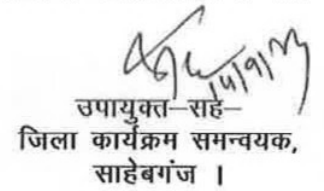 उपायुक्त-सह-
जिला कार्यक्रम समन्वयक,
साहेबगंज ।